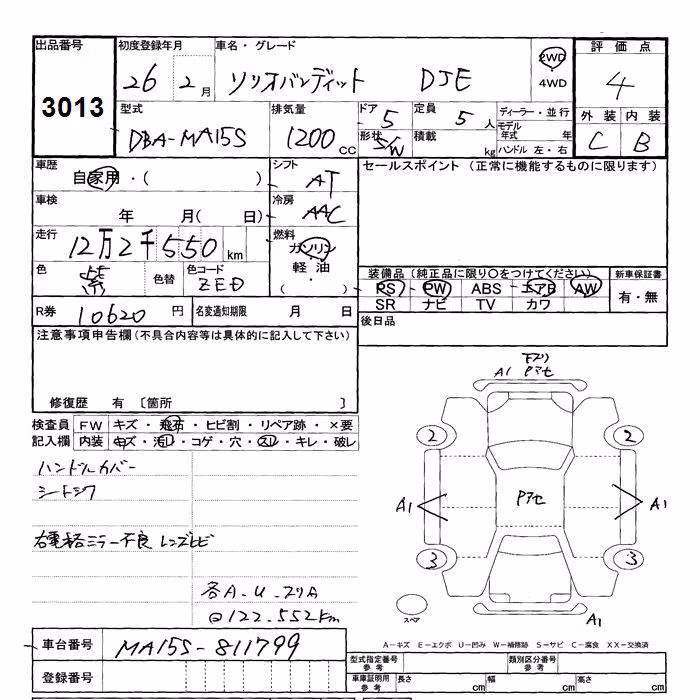 出品番号 初度登録年月 車名・グレード 2WD 評価点
3013 26 2月 ソリオバンディット DJE 4WD 4
型式 排気量 ドア 5 定員 5人 ディーラー・並行 外装 内装
DBA-MA15S 1200cc 形状 S/W 積載 kg モデル年式 年 ハンドル 左・右 C B
車歴 自家用・( ) シフト AT セールスポイント (正常に機能するものに限ります)
車検 年 月( 日) 冷房 AAC
走行 12万2千550km 燃料 ガソリン
色 紫 色替 色コード ZED 軽油・( ) 装備品 (純正品に限り○をつけてください) 新車保証書
PS PW ABS エアB AW 有・無
R券 10620円 名変通知期限 月 日 SR ナビ TV カワ
注意事項申告欄(不具合内容等は具体的に記入して下さい) 後日品
修復歴 有 〔箇所 〕
検査員 FW キズ・飛石・ヒビ割・リペア跡・×要
記入欄 内装 キズ・汚レ・コゲ・穴・スレ・キレ・破レ
下スリ
A1 Pアセ
2 2
ハンドルカバー
シートシワ
A1 Pアセ A1
右電格ミラー不良 レンズヒビ
3 3
各A.U.スリA
@122.552km
スペア A1
車台番号 MA15S-811799
A-キズ E-エクボ U-凹み W-補修跡 S-サビ C-腐食 XX-交換済
登録番号 型式指定番号 参考 類別区分番号 参考
車庫証明用 参考 長さ cm 幅 cm 高さ cm